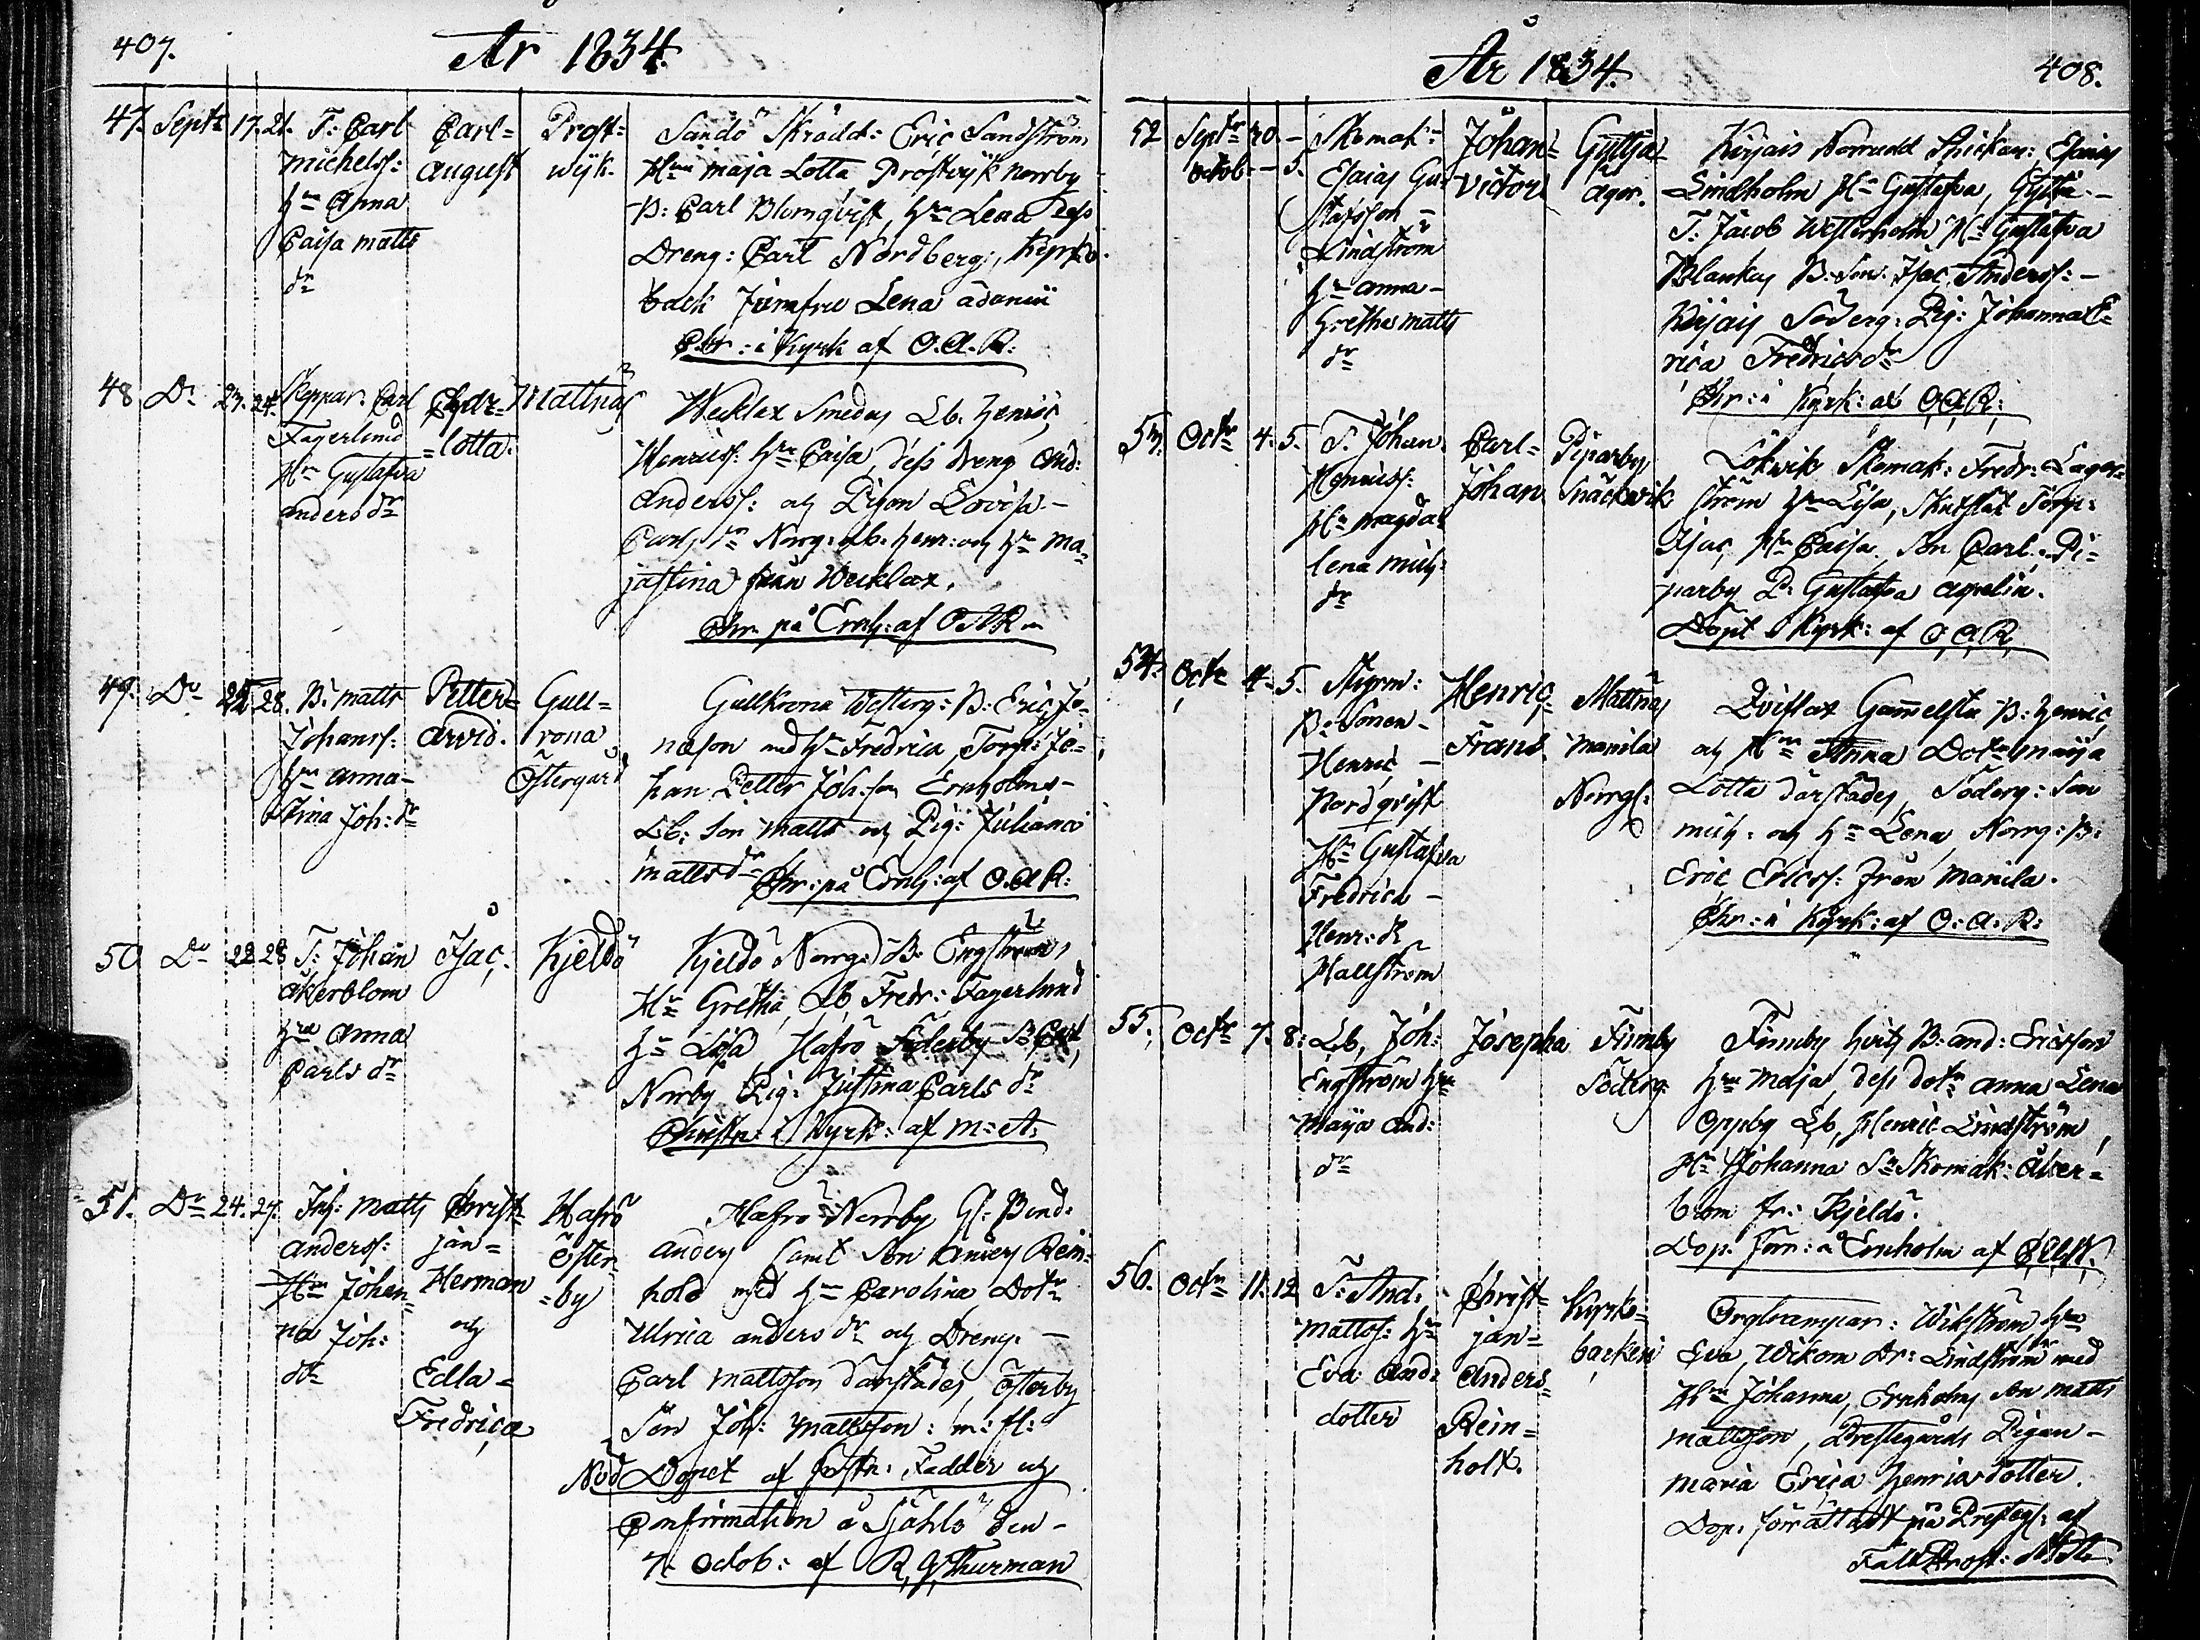 407.
År 1834.
47. Septr 17. 21. T: Carl
Michelss:
hn Anna
Caisa Matts
dr
Carl=
August
Prost=
wijk.
Sandö Skrädd: Eric Sandström
Hn Maja Lotta Prostvijk Norrby
B: Carl Blomqvist, hn Lena Dess
Dreng: Carl Nordberg,
back Jumfru Lena
Chr: i Kyrk af O.A.R.
48 Do 23. 24. Skeppar. Carl
Fagerlund
Hn Gustafva
Anders dr
=lotta.
Mattnäs
Wecklax Smedas Lb. Henric
Henricss: hn Caisa, dess dreng And:
Anderss: och Pigan Lovisa -
Carls dr Norrg: Lb. Henr: och hn Ma=
jastina från Wecklax.
Chr. på Ernh: af OAR
49. Do 28. B. Matts
Johanss:
hn Anna-
Stina Joh: dr
Petter=
Arvid.
Gull=
rona
Östergård
Gullkrona Westerg: B: Eric Jo=
nasson med hn Fredrica, Torp: Jo=
han Petter Joh:son Ernholms-
Lb: Son Matts och Pig: Juliana
Matts dr Chr: på Ernh: af O.A.R:
50 Do 22 28 T: Johan
Åkerblom
hn Anna
Carls dr
Isac,
Kjeldö
Kjeldö Norrg: B. Engström,
Hn Gretha, Lb, Fredr: Fagerlund
hn Lisa, Hafrö Söderby B Carl,
Norrby Pig: Justina Carls dr
Christn: i Kyrk: af M: A:
51. Do 24. 27. Inh: Matts
Anderss:
Hn Johan=
na Joh:
dr
Christ=
jan=
Herman
och
Edla=
Fredrica
Hafrö
Öster
=by
Hafrö Norrby Gl: Bond:
Anders samt Son Anders Rein=
hold med hn Carolina, Dotr
Ulrica Anders dr och Dreng: -
Carl Mattsson därstädes, Österby
Son Joh: Mattsson: m: fl:
Nöd Döpet af Fadder och
Confirmation å Själö den -
7. Octob: af R, G, Thurman
År 1834.
408.
52 Septr 30. -
Octob. - 5.
Skomak:
Esaias Gu=
stafsson -
Lindström
hn Anna-
Gretha Matts
dr
Johan=
Victor
Gyttja
Åger.
Kirjais Norrudd Skickar: Esaias
Lindholm Hn Gustafva, Gyttja -
T: Jacob Westerholm Hn Gustafva
Blankas B: Son: Isac Anderss: -
Kirjais Söderg: Pig: Johanna E=
rica Fredrics dr
Chr: i Kyrk: af O.A.R:
53. Octr 4. 5. T. Johan
Henricss:
Hn Magda=
lena Mich:
dr
Carl=
Johan
Piparby
Snäckwik
Lökwik Skomak: Fredr: Lager=
ström hn Lisa, Torp:
Isac, Hn Caisa, Son Carl, Pi=
parby P: Gustafva Agrelin.
Döpt i Kyrk: af O,A,R,
54. Octr 4. 5. Styrm:
B: Sonen-
Henric -
Nordqvist
Hn Gustafva
Fredrica -
Henr: dr
Hallström
Henric,
Frans.
Mattnäs
Manila
Norrg:
Qviflax Gammelstu B: Henric
och Hn Anna Dotr Maija
Lotta därstädes, Söderg: Son
Mich: och hn Lena, Norrg: B:
Eric Ericss: från Manila.
Chr: i Kyrk: af O: A: R:
55. Octr 7. 8: Lb, Joh:
Engström hn
Maija And:
dr
Josepha
Finnby
Söderg:
Finnby hvits B. And: Ericsson
hn Maja, dess dotr Anna Lena
Oppby Lb, Henric Lindström,
Hn Johanna Sn Skomak: Åker=
blom fr: Kjeldö.
Dop. förr: å Ernholm af
56. Octr 11. 12 T: And:
Mattss: hn
Eva And:
dotter
Christ=
jan=
Anders=
Rein=
holt.
Kyrko=
backen
Orgltrampar: Wikström hn
Eva, Wikom Dr: Lindström med
Hn Johanna, Ernholms Son Matts
Mattsson, Prestegårds Pigan -
Maria Erica Henricsdotter.
Dop. förrättadt på Presteg: af
Fält Prost: